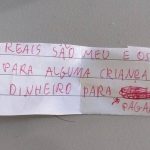 REAIS SÃO MEU E OS
PARA ALGUMA CRIANÇA
DINHEIRO PARA
PAGAR